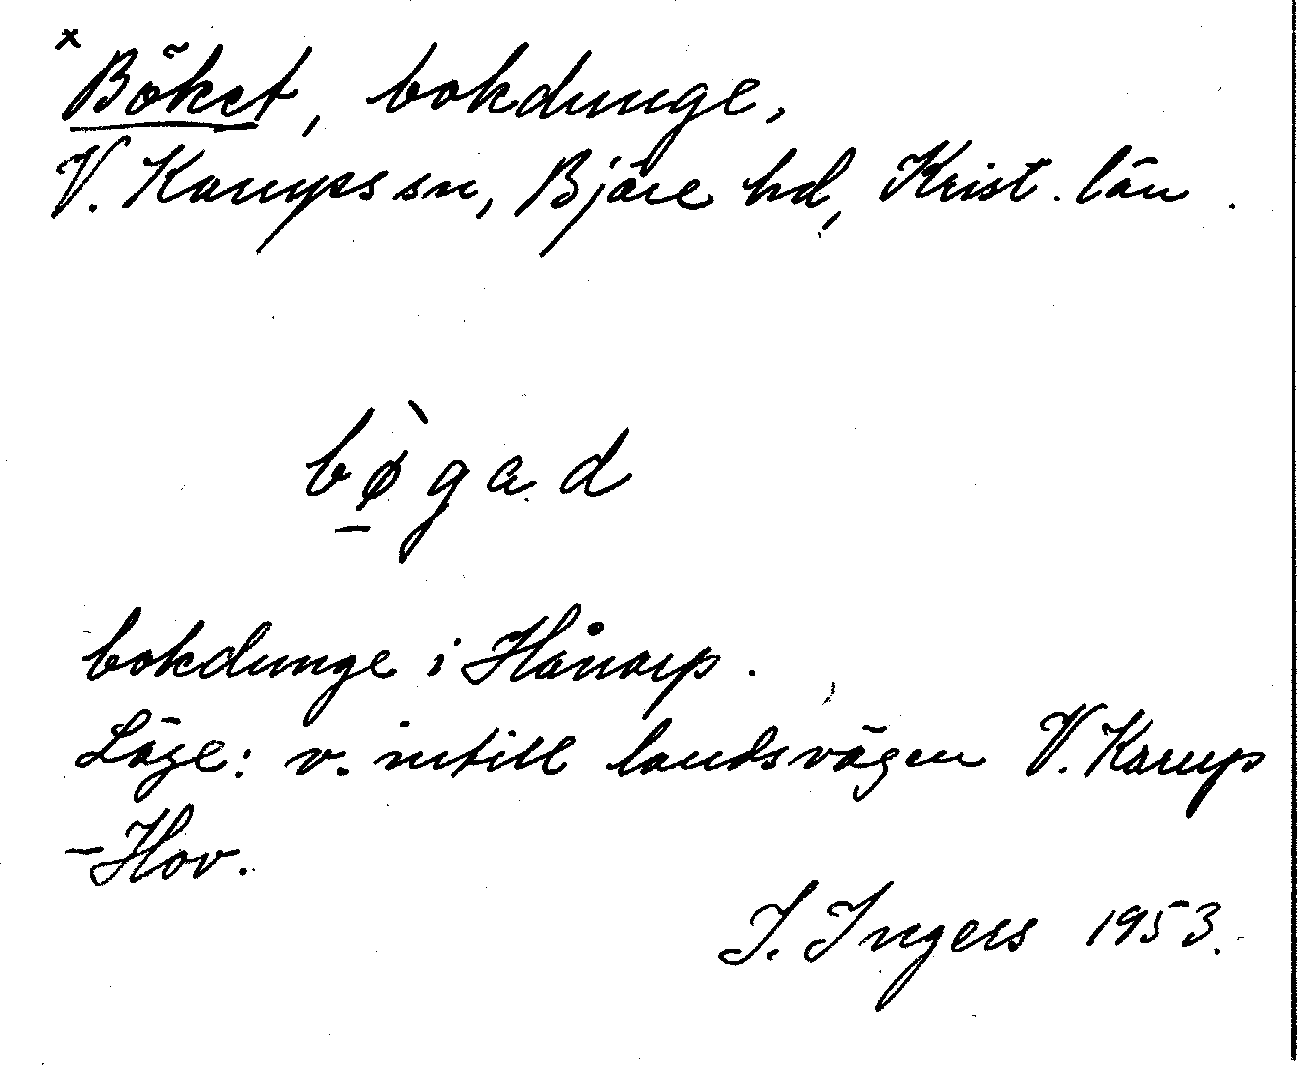 x Böket, bokdunge,
V. Karups sn, Bjäre hd, Krist. län.
bø̀gad
bokdunge i Hånarp.
Läge: v. intill landsvägen V. Karup
-Hov.
I. Ingers 1953.